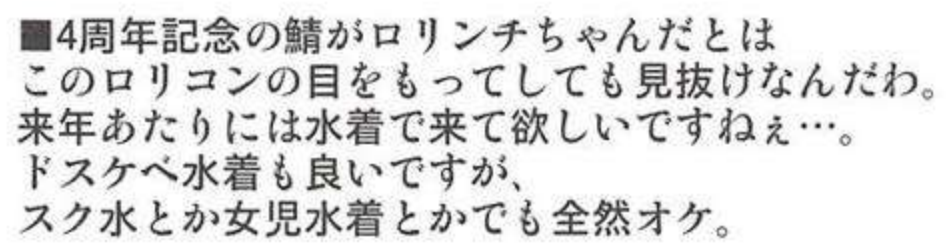 ■4周年記念の鯖がロリンチちゃんだとは
このロリコンの目をもってしても見抜けなんだわ。
来年あたりには水着で来て欲しいですねぇ…。
ドスケベ水着も良いですが、
スク水とか女児水着とかでも全然オケ。